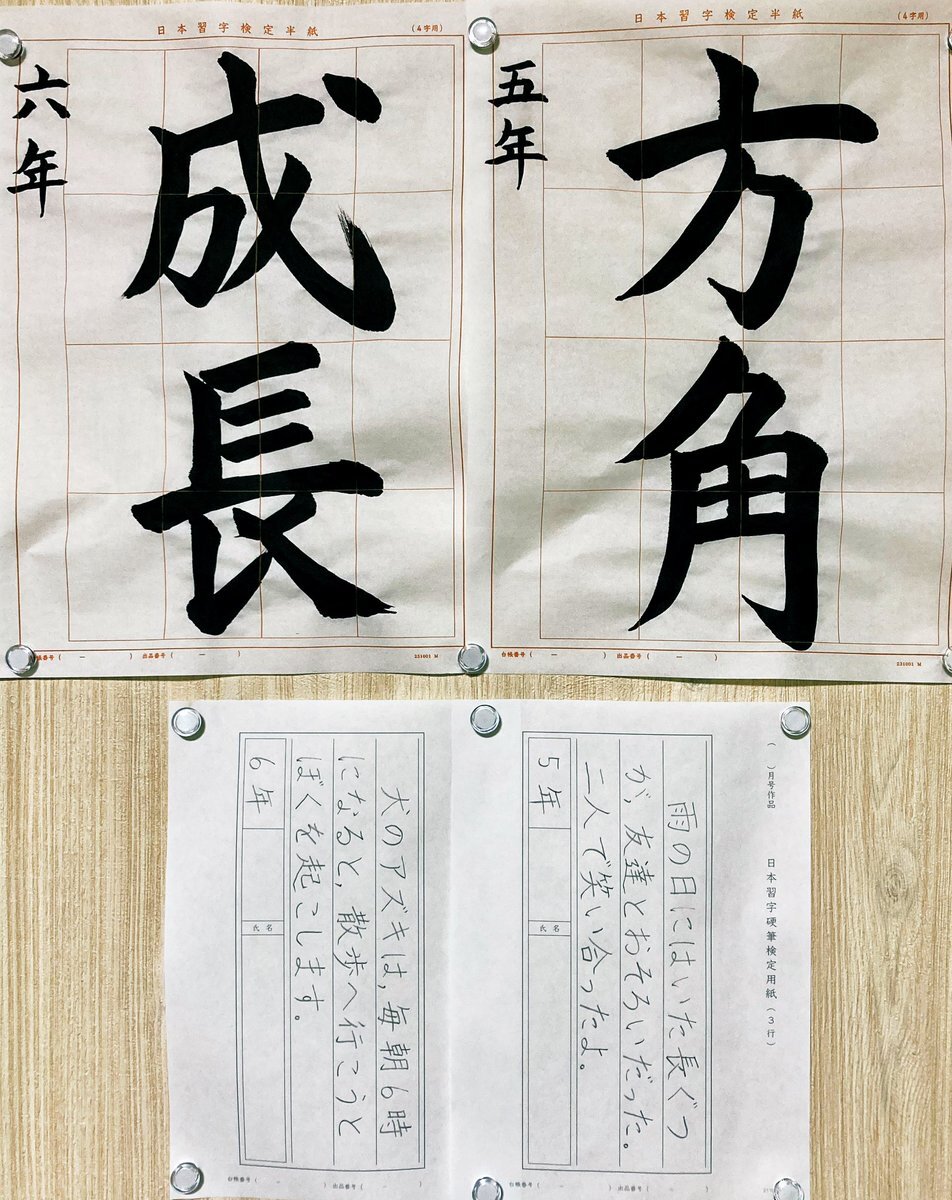 日本習字検定半紙
(4字用)
方角
五年
台帳番号( － )
出品番号( － )
231001 M
日本習字検定半紙
(4字用)
成長
六年
台帳番号( － )
出品番号( － )
231001 M
( )月号作品
日本習字硬筆検定用紙(3行)
雨の日にはいた長ぐつ
が、友達とおそろいだった。
二人で笑い合ったよ。
5年
氏名
台帳番号( － )
出品番号( － )
犬のアズキは、毎朝6時
になると、散歩へ行こうと
ぼくを起こします。
6年
氏名
台帳番号( － )
出品番号( － )